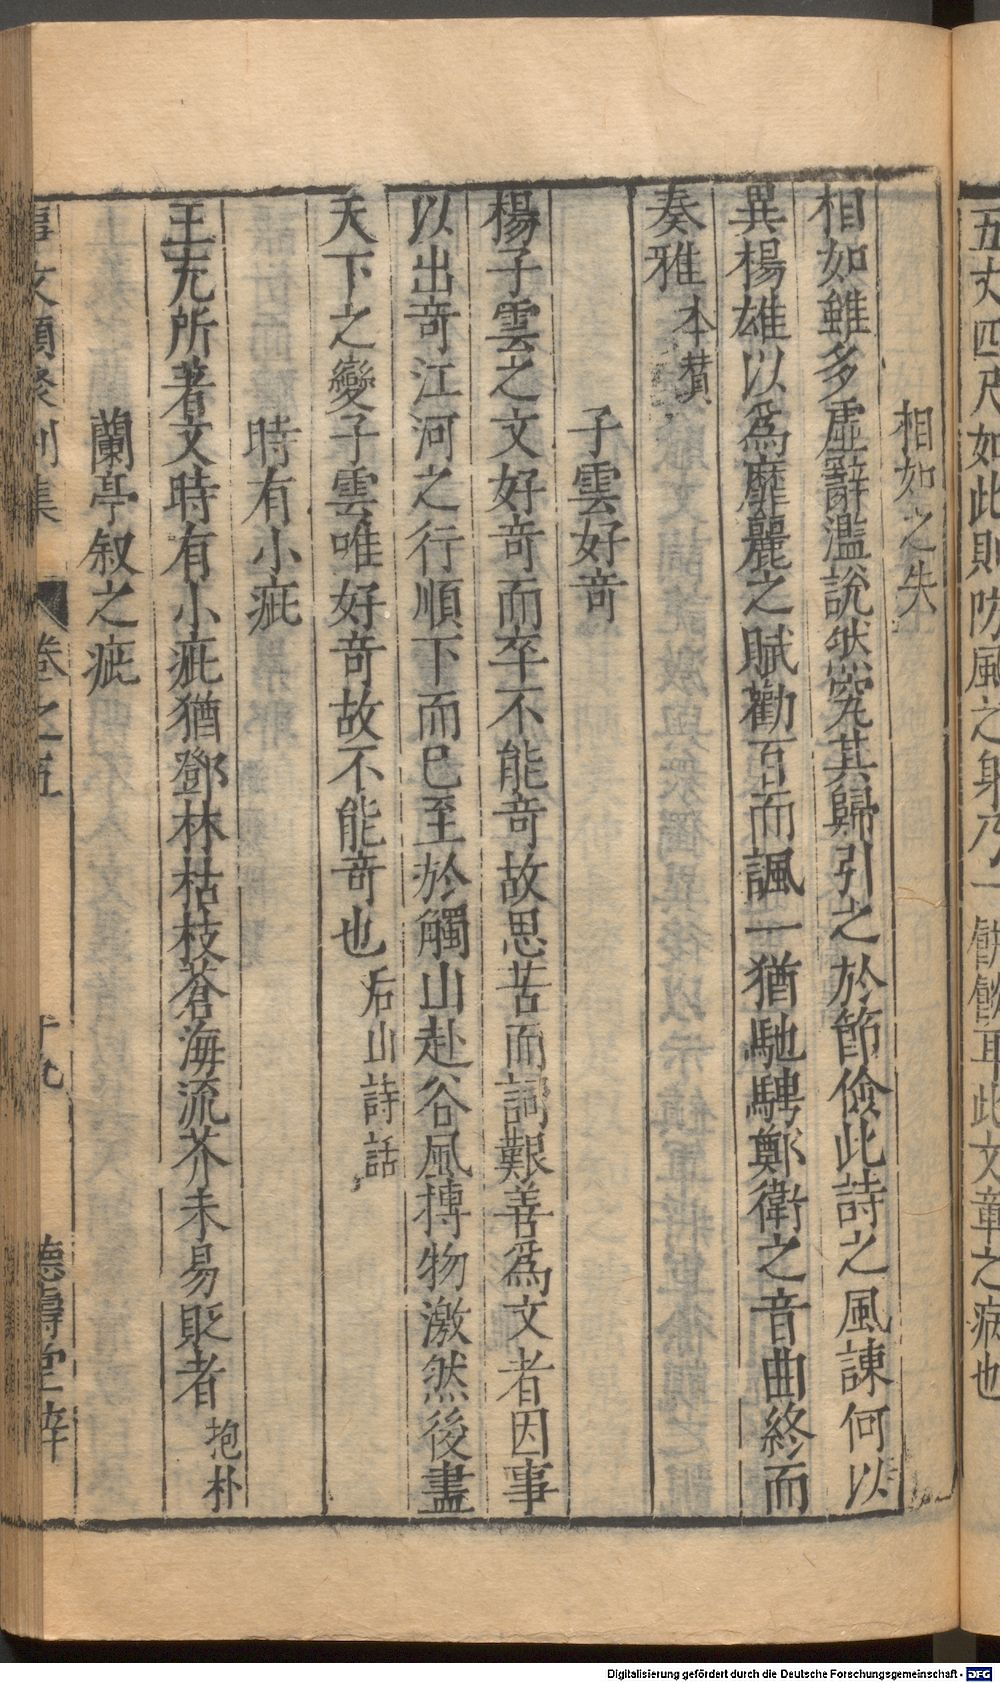 五丈四尺如此則防風之身乃一餅餤耳此文章之病也
相如之失
相如雖多虛辭濫說然究其歸引之於節儉此詩之風諫何以
異楊雄以為靡麗之賦勸百而諷一猶馳騁鄭衛之音曲終而
奏雅本賛
子雲好奇
楊子雲之文好奇而卒不能奇故思苦而詞艱善為文者因事
以出奇江河之行順下而已至於觸山赴谷風摶物激然後盡
天下之變子雲唯好奇故不能奇也后山詩話
時有小疵
王充所著文時有小疵猶鄧林枯枝蒼海流芥未易貶者抱朴
蘭亭叙之疵
事文類聚別集 卷之五 十九 德壽堂梓
Digitalisierung gefördert durch die Deutsche Forschungsgemeinschaft - DFG